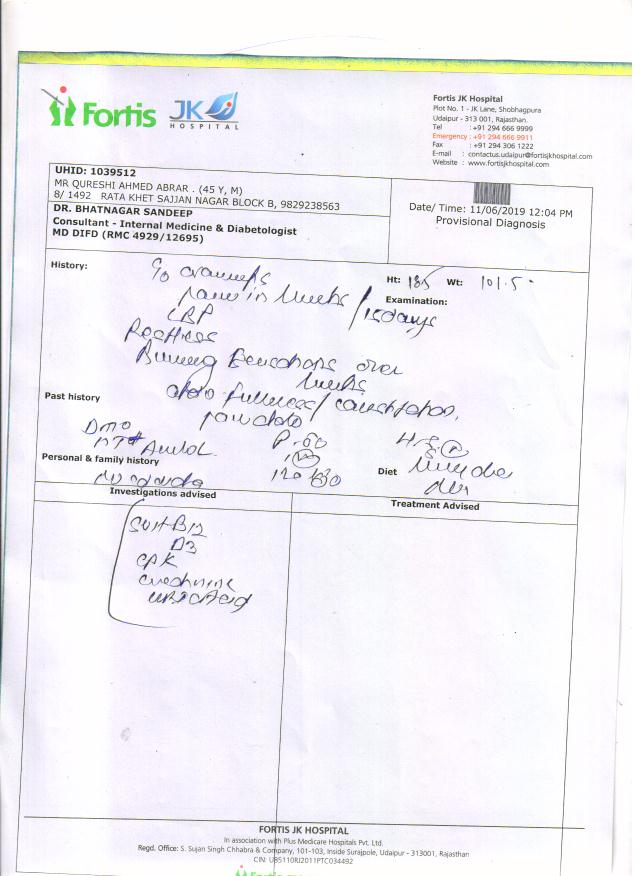 Fortis JK
HOSPITAL
Fortis JK Hospital
Plot No. 1 - JK Lane, Shobhagpura
Udaipur - 313 001, Rajasthan.
Tel : +91 294 666 9999
Emergency : +91 294 666 9911
Fax : +91 294 306 1222
E-mail : contactus.udaipur@fortisjkhospital.com
Website : www.fortisjkhospital.com
UHID: 1039512
MR QURESHI AHMED ABRAR . (45 Y, M)
8/ 1492 RATA KHET SAJJAN NAGAR BLOCK B, 9829238563
DR. BHATNAGAR SANDEEP
Consultant - Internal Medicine & Diabetologist
MD DIFD (RMC 4929/12695)
Date/ Time: 11/06/2019 12:04 PM
Provisional Diagnosis
History:
Ht: 185 Wt: 101.5
Examination:
in / 15 days
LBP
Restless
Burning sensations over
fullness/ constipation,
Past history
Personal & family history
Diet
Investigations advised
Treatment Advised
B12
D3
CPK
creatinine
uric acid
FORTIS JK HOSPITAL
In association with Plus Medicare Hospitals Pvt. Ltd.
Regd. Office: S. Sujan Singh Chhabra & Company, 101-103, Inside Surajpole, Udaipur - 313001, Rajasthan
CIN: U85110RJ2011PTC034492